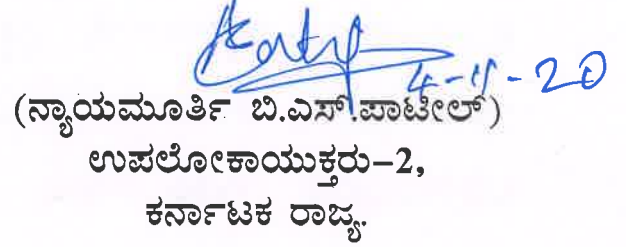 4-11-20
(ನ್ಯಾಯಮೂರ್ತಿ ಬಿ.ಎಸ್.ಪಾಟೀಲ್)
ಉಪಲೋಕಾಯುಕ್ತರು-2,
ಕರ್ನಾಟಕ ರಾಜ್ಯ.